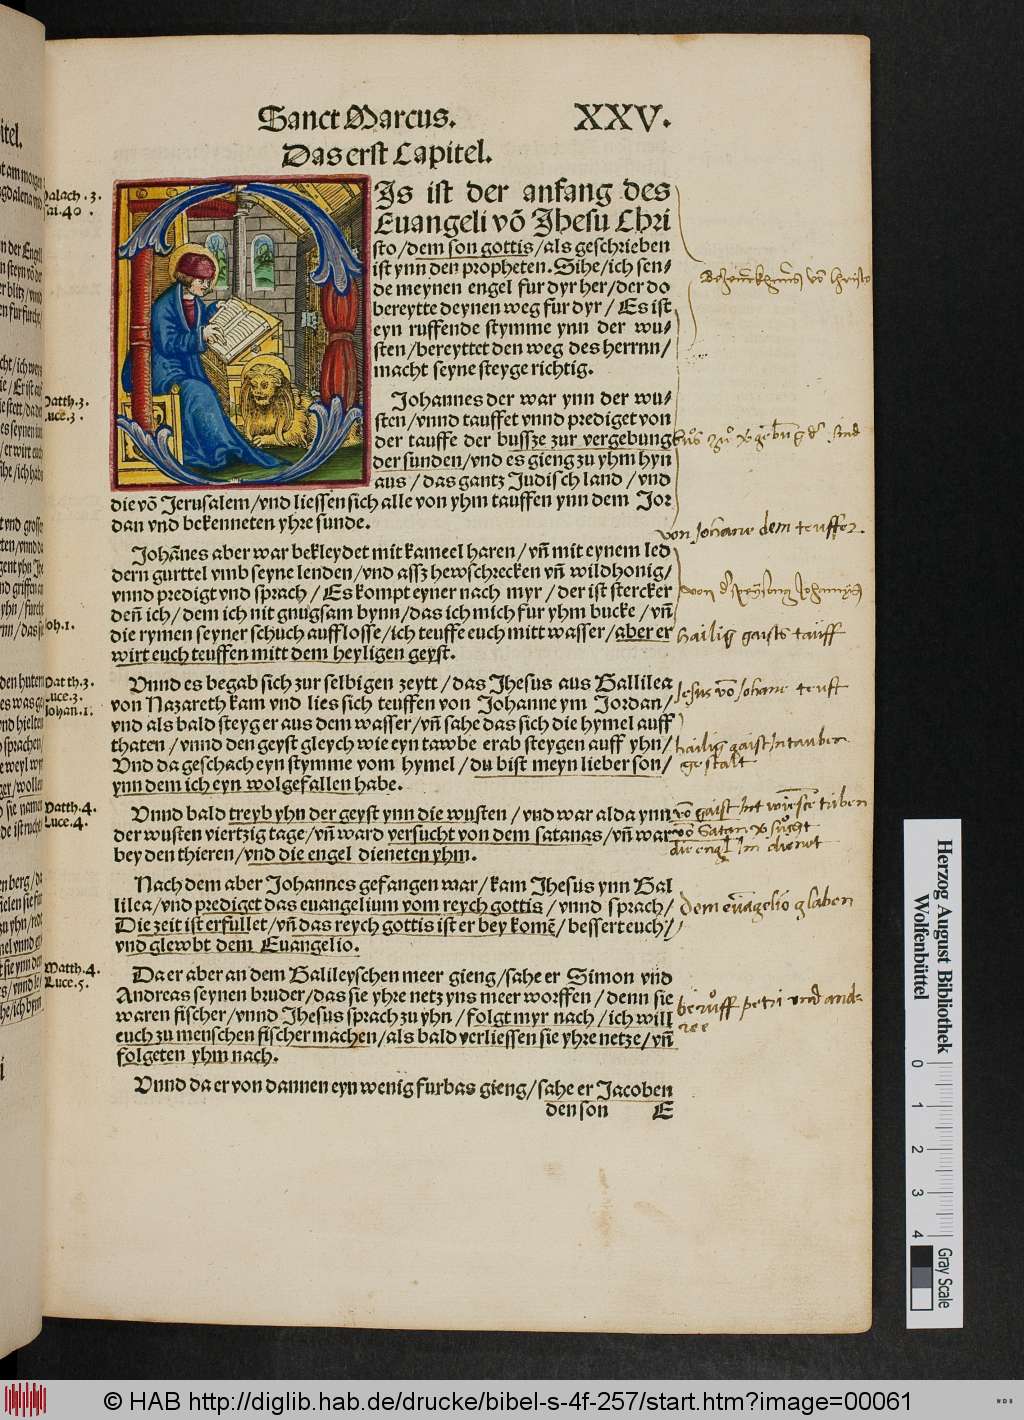 Sanct Marcus. XXV.
Das erst Capitel.
Malach. 3.
Isai. 40.
Js ist der anfang des
Euangeli võ Jhesu Chri
sto/dem son gottis/als geschrieben
ist ynn den propheten. Sihe/ich sen⸗
de meynen engel fur dyr her/der do
bereytte deynen weg fur dyr/Es ist
eyn ruffende stymme ynn der wu⸗
sten/bereyttet den weg des herrnn/
macht seyne steyge richtig.
Matth.3.
Luce.3.
Johannes der war ynn der wu⸗
sten/vnnd tauffet vnnd prediget von
der tauffe der bussze zur vergebung
der sunden/vnd es gieng zu yhm hyn
aus/das gantz Judisch land/vnd
die võ Jerusalem/vnd liessen sich alle von yhm tauffen ynn dem Jor
dan vnd bekenneten yhre sunde.
von Johane dem teuffer.
Johãnes aber war bekleydet mit kameel haren/vñ mit eynem led
dern gurttel vmb seyne lenden/vnd assz hewschrecken vñ wildhonig/
vnnd predigt vnd sprach/Es kompt eyner nach myr/der ist stercker
deñ ich/dem ich nit gnugsam bynn/das ich mich fur yhm bucke/vñ
Joh.1.
die rymen seyner schuch aufflosse/ich teuffe euch mitt wasser/aber er
wirt euch teuffen mitt dem heyligen geyst.
hailig gaists tauff
Matth.3.
Luce.3.
Johan.1.
Vnnd es begab sich zur selbigen zeytt/das Jhesus aus Gallilea
von Nazareth kam vnd lies sich teuffen von Johanne ym Jordan/
vnd als bald steyg er aus dem wasser/vñ sahe das sich die hymel auff
thaten/vnnd den geyst gleych wie eyn tawbe erab steygen auff yhn/
Vnd da geschach eyn stymme vom hymel/du bist meyn lieber son/
ynn dem ich eyn wolgefallen habe.
Jesus võ Johane teuft
hailig gaist In tauben
gestalt
Matth.4.
Luce.4.
Vnnd bald treyb yhn der geyst ynn die wusten/vnd war alda ynn
der wusten viertzig tage/vñ ward versucht von dem satanas/vñ war
bey den thieren/vnd die engel dieneten yhm.
Nach dem aber Johannes gefangen war/kam Jhesus ynn Gal
lilea/vnd prediget das euangelium vom reych gottis/vnnd sprach/
Die zeit ist erfullet/vñ das reych gottis ist er bey komẽ/bessert euch/
vnd glewbt dem Euangelio.
dem euãgelio glaben
Matth.4.
Luce.5.
Da er aber an dem Galileyschen meer gieng/sahe er Simon vnd
Andreas seynen bruder/das sie yhre netz yns meer worffen/denn sie
waren fischer/vnnd Jhesus sprach zu yhn/folgt myr nach/ich will
euch zu menschen fischer machen/als bald verliessen sie yhre netze/vñ
folgeten yhm nach.
berůff petri vnd and⸗
ree
Vnnd da er von dannen eyn wenig furbas gieng/sahe er Jacoben
den son E
Herzog August Bibliothek
Wolfenbüttel
0 1 2 3 4
Gray Scale
© HAB http://diglib.hab.de/drucke/bibel-s-4f-257/start.htm?image=00061